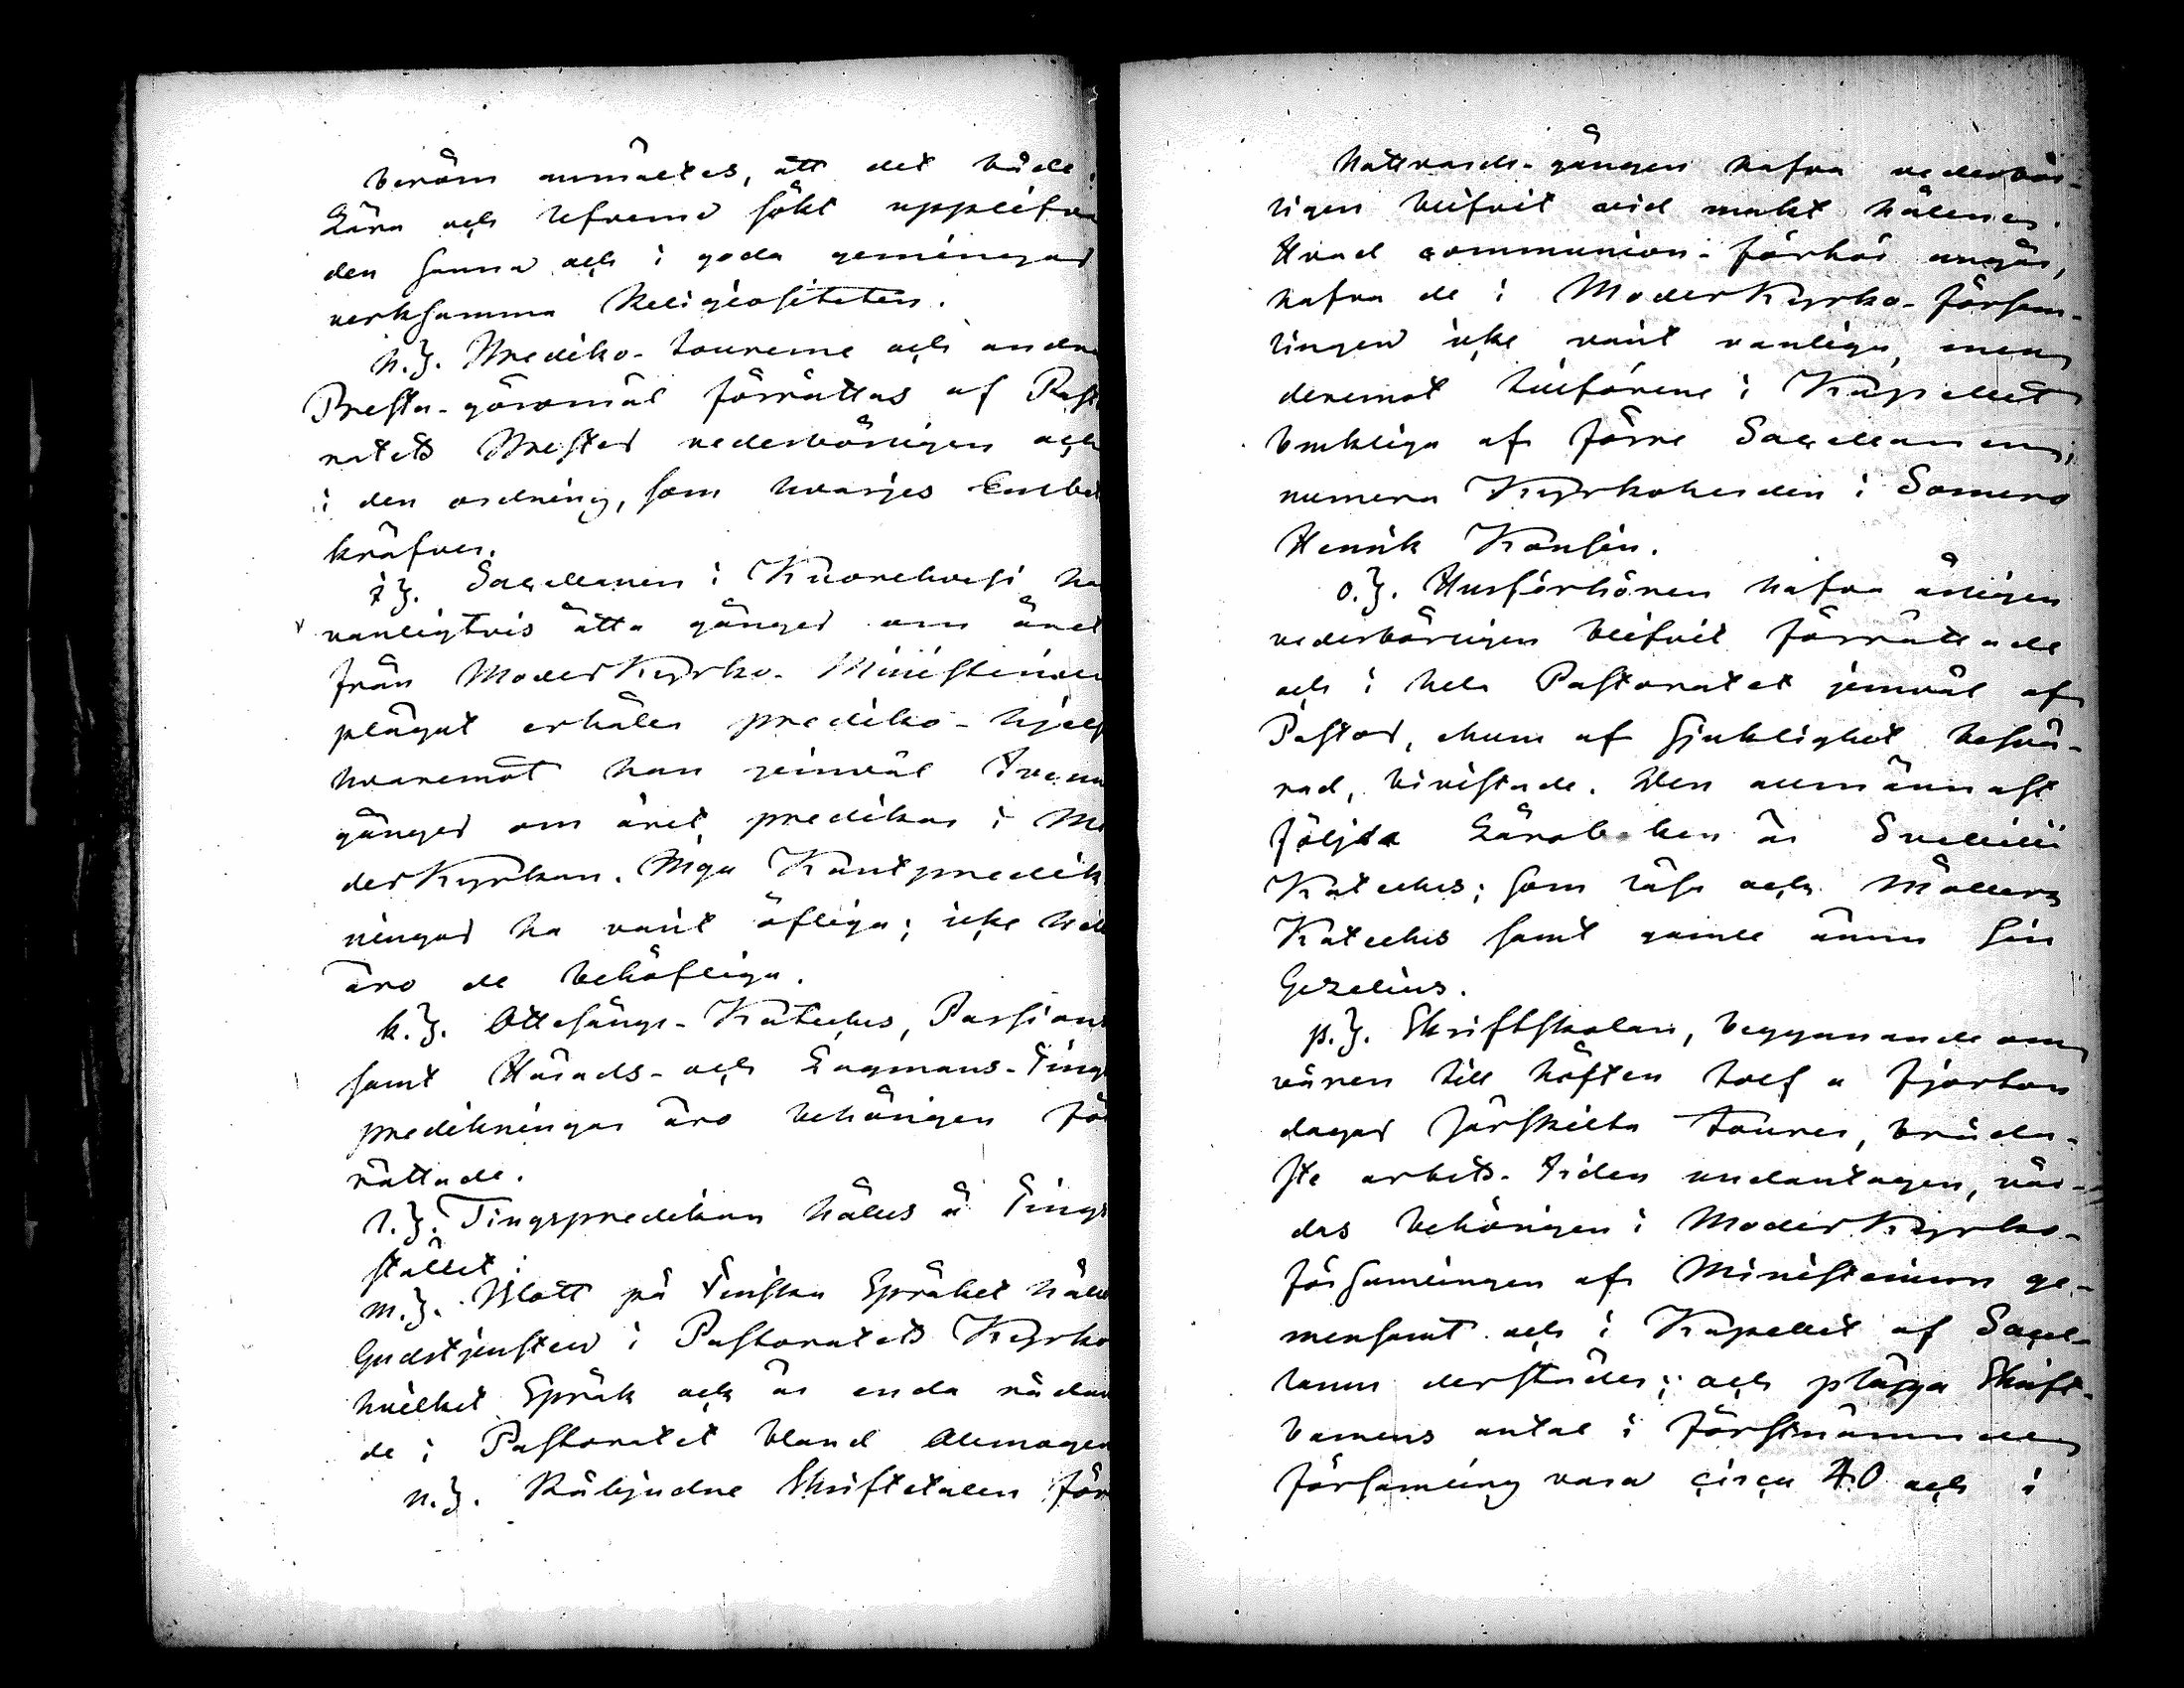 beröm anmältes, att det både i
Lära och lefverne sökt upplifva
den sanna och i goda gerningar
verksamma Religiositeten.
h.). Prediko-tourerne och andra
Presta-göromål förrättas af Pasto
ratets Prester vederbörligen och
i den ordning, som hvarjes Embete
kräfver.
i). Sacellanen i Kuorehvesi ha
vanligtvis åtta gånger om året
från ModerKyrko-Ministerium
plägat erhålla prediko-hjelp
hvaremot han jemväl Trenne
gånger om året predikar i Mo
derKyrkan. Inga Kantpredik
ningar ha varit öfliga; icke hel
äro de behöfliga.
k.). Ottesångs-Kateches, Passions
samt Härads- och Lagmans-Tings
predikningar äro behörigen för
rättade.
l.). Tingspredikan hålles å Tings
stället;
m.). Blott på Finska Språket hålles
Gudstjensten i Pastoratets Kyrko
hvilket Språk ock är enda rådan
de i Pastoratet bland Allmogen
n.). Påbjudne Skriftetalen för
Nattvards-gången hafva vederbör-
ligen blifvit vid makt hållne.
Hvad communion-förhör angår,
hafva de i ModerKyrko-försam-
lingen icke varit vanliga, men
deremot tillförene i Kapellet
brukliga af förre Sacellanen,
numera Kyrkoherden i Somero
Henrik Konsin.
o.). Husförhören hafva årligen
vederbörligen blifvit förrättade
och i hela Pastoratet jemväl af
Pastor, ehuru af sjuklighet besvä-
rad, bivistade. Den allmännast
följda Läroboken är Svebilii
Kateches; som läses ock Möllers
Kateches samt gamle ännu sin
Gezelius.
p.). Skriftskolan, begynnande om
våren till hösten tolf a fjorton
dagar särskilta Tourer, bråda-
ste arbets-tiden undantagen, vår-
das behörigen i ModerKyrko-
församlingen af Ministerium ge-
mensamt och i Kapellet af Sacel-
lanen derstädes; och plägga Skrift-
barnens antal i förstnämnde
församling vara circa 40 och i